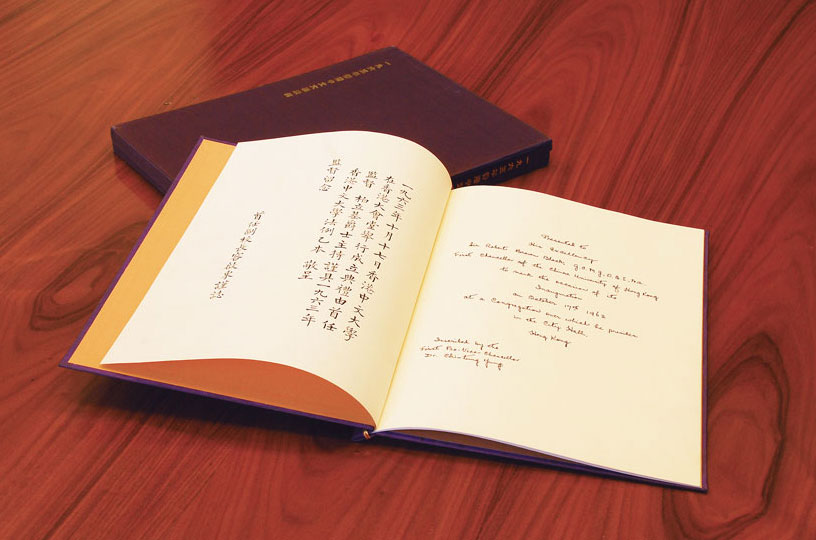 一九六三年十月十七日香港中文大學
在香港大會堂舉行成立典禮由首任
監督 柏立基爵士主持謹具一九六三年
香港中文大學法例乙本 敬呈
監督留念
首任副校長容啟東謹誌
Presented to
His Excellency
Sir Robert Brown Black, G.C.M.G., O.B.E., M.A.
First Chancellor of the Chinese University of Hong Kong
to mark the occasion of its
Inauguration
on October 17th 1963
at a Congregation over which he presides
in the City Hall
Hong Kong
Inscribed by the
First Pro-Vice-Chancellor
Dr. Chi-tung Yung